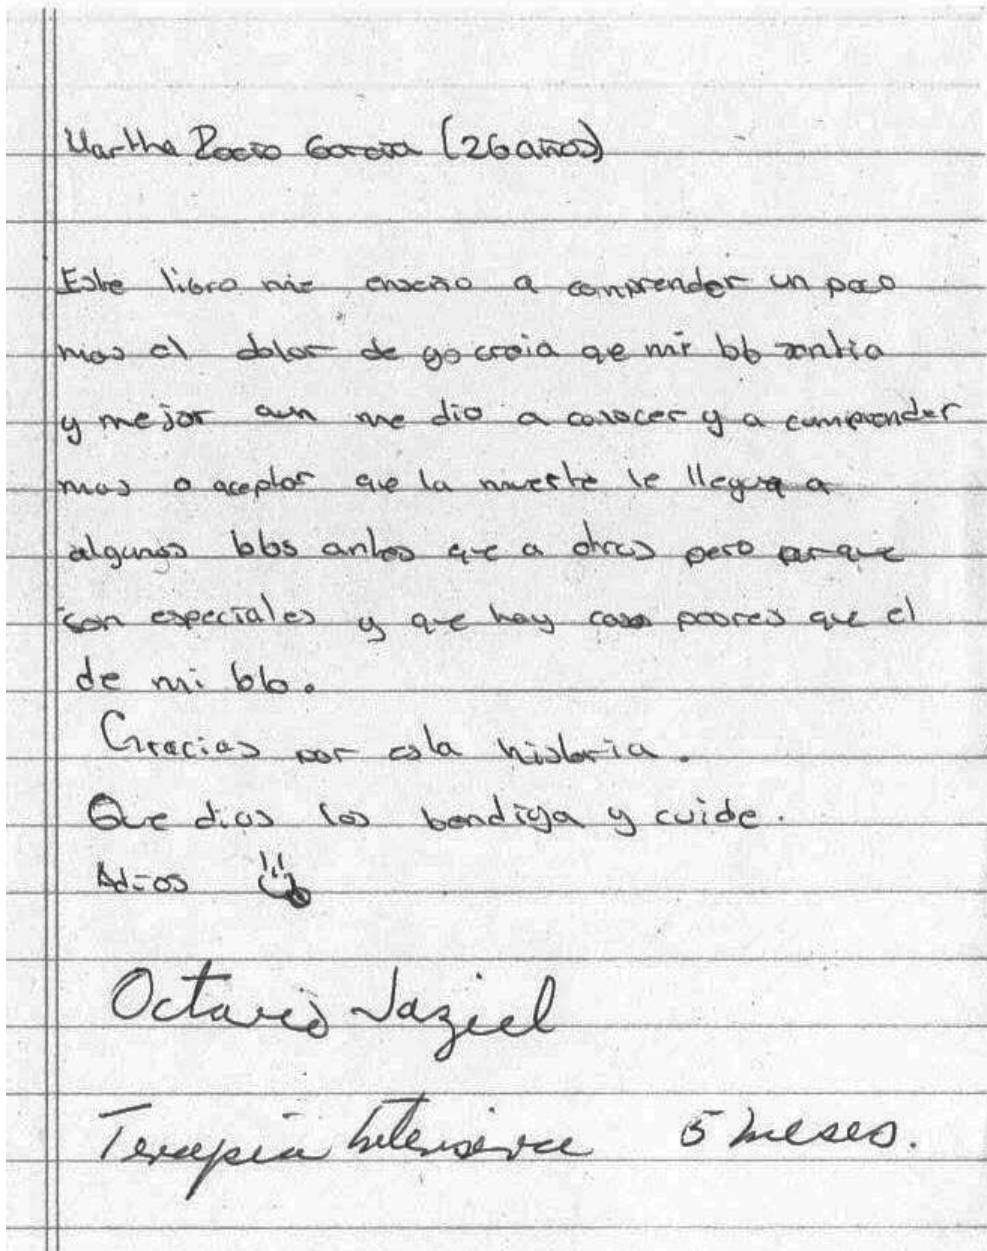 Martha Rocio Garcia (26 años)
Este libro me enseño a comprender un poco
mas el dolor de yo creia qe mi bb sentia
y mejor aun me dio a conocer y a cumprender
mas o aceptar que la muerte le llegue a
algunos bbs antes que a otros pero porque
son especiales y que hay casos peores que el
de mi bb.
Gracias por esta historia.
Que dios los bendiga y cuide.
Adios
Octavio Jaziel
Terapia Intensiva 5 meses.